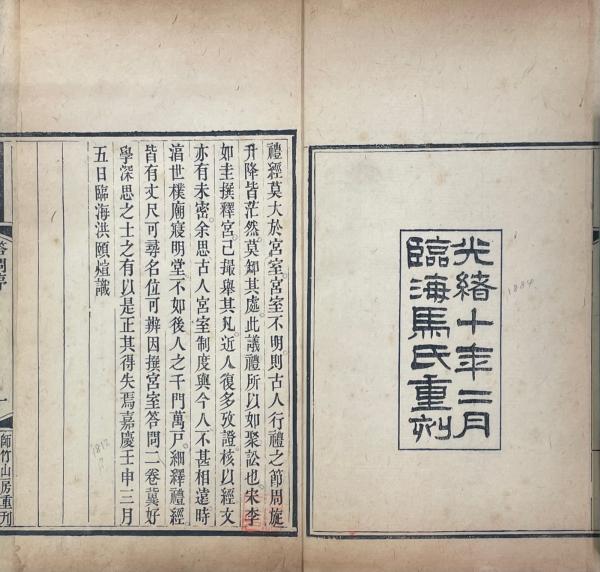 光緒十年二月
臨海馬氏重刻
1884
禮經莫大於宮室宮室不明則古人行禮之節周旋
升降皆茫然莫知其處此議禮所以如聚訟也宋李
如圭撰釋宮已撮舉其凡近人復多攷證核以經文
亦有未密余思古人宮室制度與今人不甚相遠時
湻世樸廟寢明堂不如後人之千門萬戶細繹禮經
皆有丈尺可尋名位可辨因撰宮室答問二卷冀好
學深思之士之有以是正其得失焉嘉慶壬申三月
五日臨海洪頤煊識
1812
答問序
一
師竹山房重刊